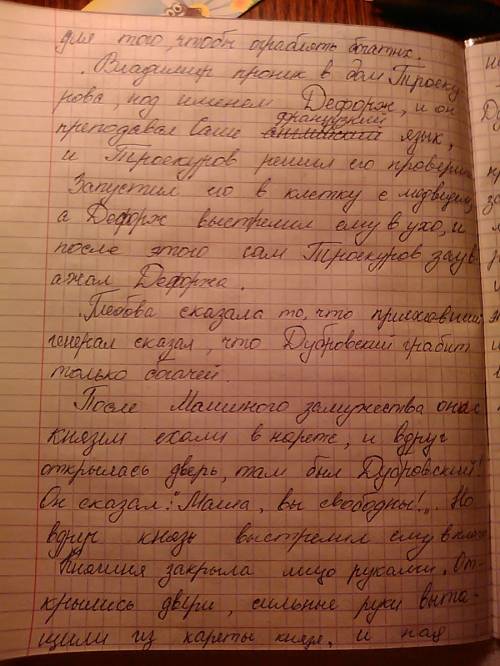 для того, чтобы ограблять богатых.
Владимир проник в дом Троеку-
рова, под именем Дефорж, и он
французский
преподавал Саше английский язык,
и Троекуров решил его проверить
Запустил его в клетку с медведем,
а Дефорж выстрелил ему в ухо, и
после этого сам Троекуров заув-
ажал Дефоржа.
сказала то, что приехавший
генерал сказал, что Дубровский грабит
только богачей.
После Машиного замужества она с
князем ехали в карете, и вдруг
открылась дверь, там был Дубровский!
Он сказал: "Маша, вы свободны!". Но
вдруг князь выстрелил ему в
Княгиня закрыла лицо руками. От-
крылись двери, сильные руки выта-
щили из кареты князя, и